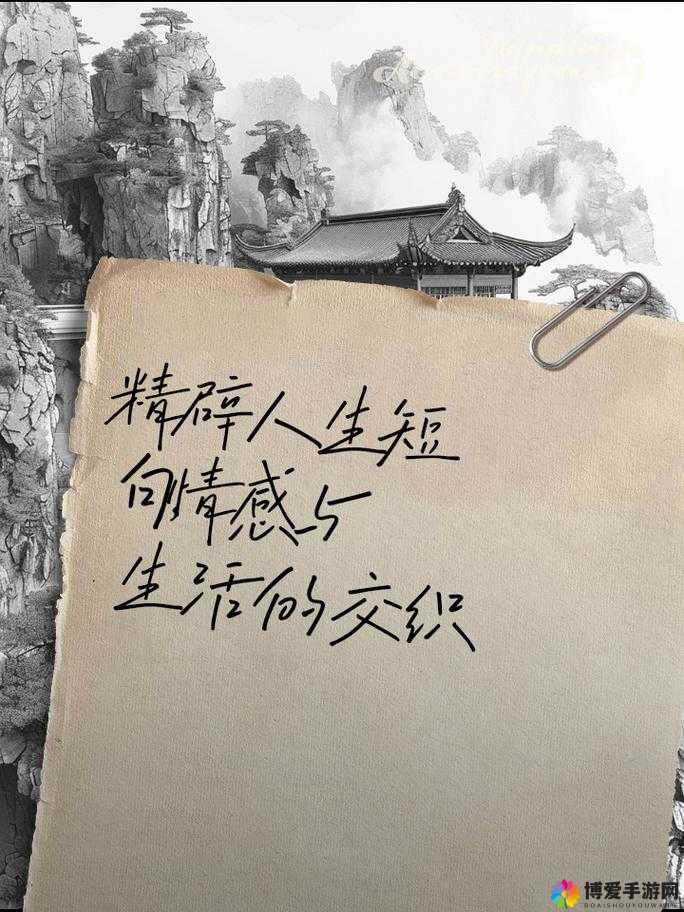 精辟人生短
句情感与
生活的交织
博爱手游网
BOAISHOUYOUWANG